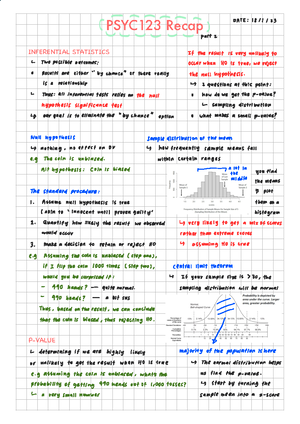 DATE: 18/1/23
PSYC123 Recap
part 2
INFERENTIAL STATISTICS
↳ Two possible outcomes:
Results are either "by chance" or there really
is a relationship
↳ Thus: All inferential tests relies on the null
hypothesis significance test
our goal is to eliminate the "by chance" option
If the result is very unlikely to
occur when H0 is true, we reject
the null hypothesis.
↳ 2 questions at this point:
how do we get the p-value?
↳ sampling distribution
what makes a small p-value?
Null hypothesis
↳ nothing, no effect on DV
e.g The coin is unbiased.
Alt hypothesis: Coin is biased
The standard procedure:
1. Assume null hypothesis is true
(akin to "innocent until proven guilty"
2. Quantify how likely the result we observed
would occur
3. make a decision to retain or reject H0
e.g Assuming the coin is unbiased (step one),
if I flip the coin 1000 times (step two),
would you be surprised if:
- 490 heads? — quite normal
- 990 heads? — a bit sus
Thus, based on the result, we can conclude
that the coin is biased, thus rejecting H0.
P-VALUE
↳ determining if we are highly likely
or unlikely to get the result when H0 is true
e.g assuming the coin is unbiased, what's the
probability of getting 990 heads out of 1,000 tosses?
↳ a very small number
Sample distribution of the mean
↳ how frequently sample means fall
within certain ranges
a lot in the
middle
you find
the means
& plot
them as a
histogram
↳ very likely to get a mix of scores
rather than extreme scores
↳ assuming H0 is true
Central limit theorem
↳ If your sample size is >30, the
sampling distribution will be normal
Probability is depicted by
area under the curve: larger
area, greater probability.
majority of the population is here
↳ The normal distribution helps
us find the p-value.
↳ start by turning the
sample mean into a z-score